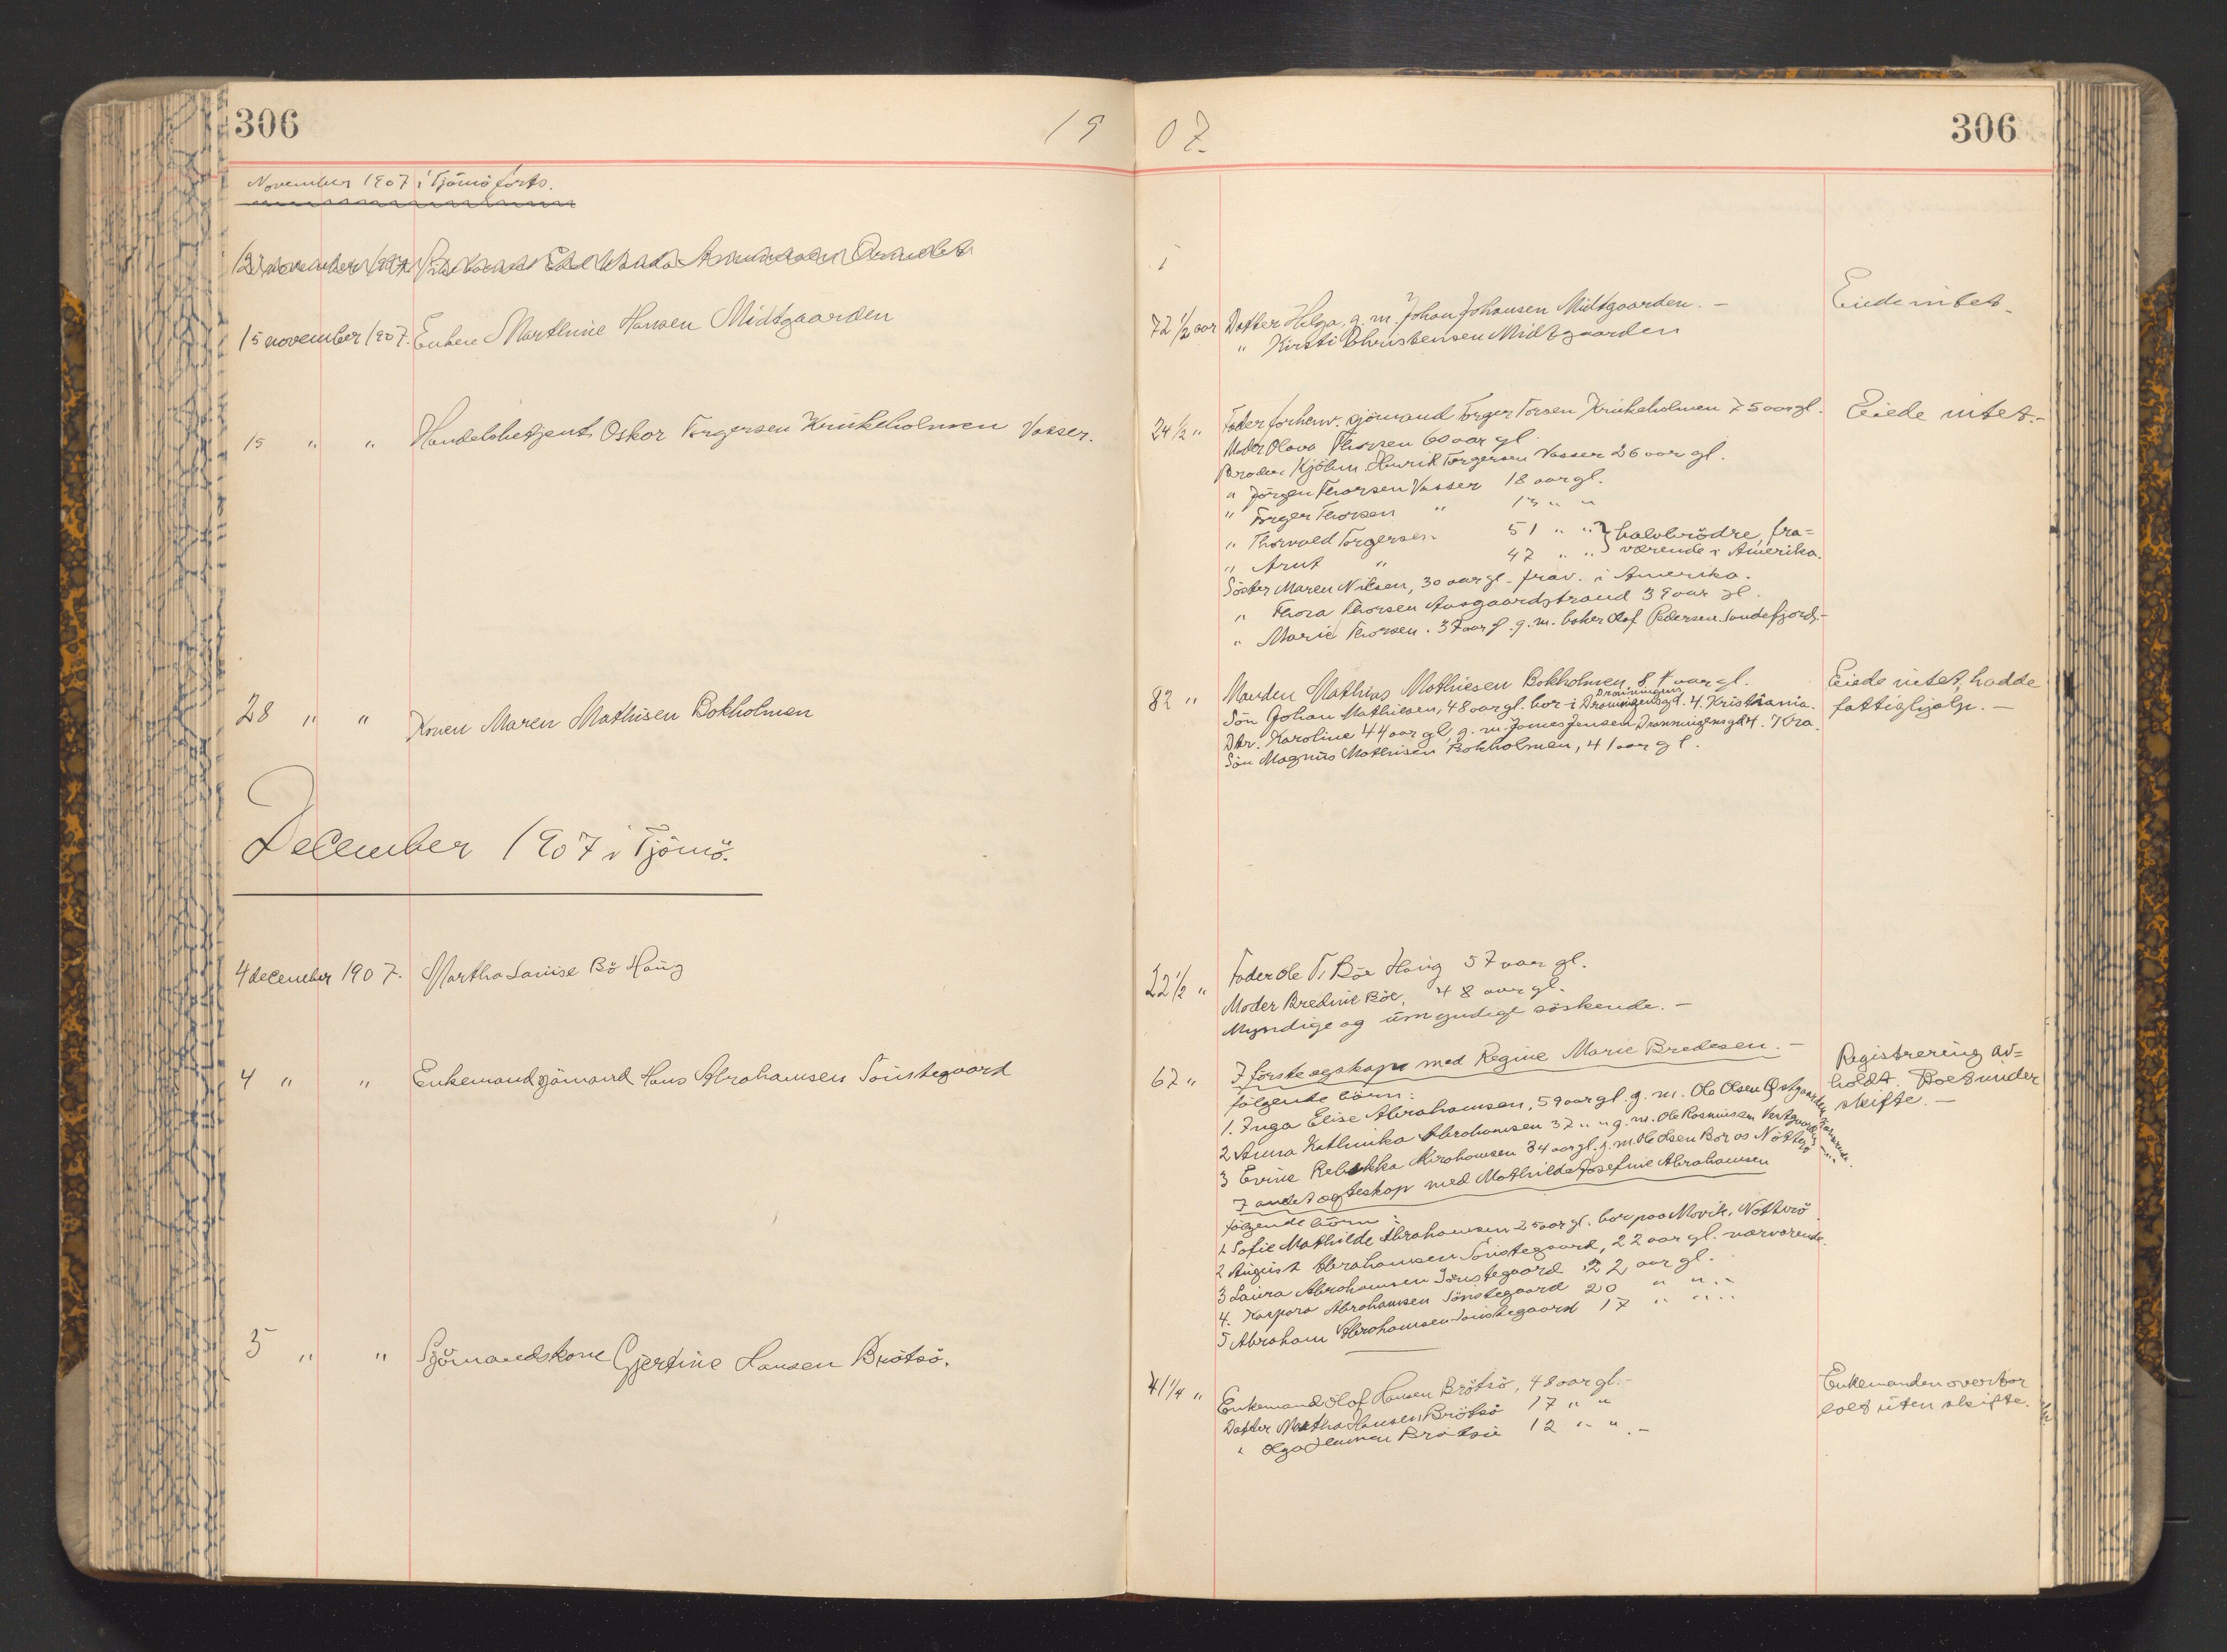 306
19
07.
306
November 1907 i Tjömö forts.
15 november 1907. Enken Marthine Hansen Midtgaarden
72 1/2 aar Datter Helga, g. m. Johan Johansen Midtgaarden. –
" Kirsti Christensen Midtgaarden
Eiede intet.
15 " " Handelsbetjent Oskar Torgersen Krukeholmen Vasser.
24 1/2 " Fader forhenv. sjömand Torger Torsen Krukeholmen 75 aar gl.
Moder Olava Thorsen 60 aar gl.
Broder Henrik Torgersen Vasser 26 aar gl.
" Jörgen Thorsen Vasser 18 aar gl.
" Torger Thorsen " 13 " "
" Thorvald Torgersen 51 " " } halvbrödre, fra=
" Arnt " 47 " " } værende i Amerika.
Söster Maren Nilsen, 30 aar gl. frav. i Amerika.
" Thora Thorsen Aasgaardstrand 39 aar gl.
" Marie Thorsen. 37 aar gl. g. m. baker Olaf Pedersen Sandefjord. –
Eiede intet. –
28 " " Konen Maren Mathisen Bokholmen
82 " Manden Mathias Mathiesen Bokholmen 84 aar gl.
Sön Johan Mathiesen, 48 aar gl. bor i Dronningensgd. 4. Kristiania.
Dronningens
Dtr. Karoline 44 aar gl, g. m. James Jensen Dronningensgd 4. Kra.
Sön Magnus Mathisen Bokholmen, 41 aar gl.
Eiede intet, hadde
fattighjælp. –
December 1907 i Tjömö.
4 december 1907. Martha Lauise Bö Haug
22 1/2 " Fader Ole T. Böe Haug 57 aar gl.
Moder Bredine Böe, 48 aar gl.
Myndige og umyndige söskende. –
4 " " Enkemand sjömand Hans Abrahamsen Sönstegaard
67 " I förste egskap med Regine Marie Bredesen. –
fölgende börn:
1. Inga Elise Abrahamsen, 39 aar gl. g. m. Ole Olsen Østgaarden, nærværende.
2 Anna Kathinka Abrahamsen 37 " " g. m. Ole Rasmussen Vestgaarden – " –
3 Evine Rebekka Abrahamsen 34 aar gl. g. m. Ole Olsen Bor os Nötterö
I andet egteskap med Mathilde Josefine Abrahamsen
fölgende börn:
1 Sofie Mathilde Abrahamsen 25 aar gl. bor paa Movik, Nötterö
2 August Abrahamsen Sönstegaard, 22 aar gl. nærværende.
3 Laura Abrahamsen Sönstegaard 22 aar gl.
4. Kaspara Abrahamsen Sönstegaard 20 " " –
5 Abraham Abrahamsen Sönstegaard 17 " " –
Registrering av=
holdt. Boet under
skifte. –
5 " " Sjömandskone Gjertine Hansen Brötsö.
41 1/4 " Enkemand Olaf Hansen Brötsö, 48 aar gl. –
Datter Martha Hansen Brötsö 17 " "
" Olga Hansen Brötsö 12 " " –
Enkemanden overtar
boet uten skifte.